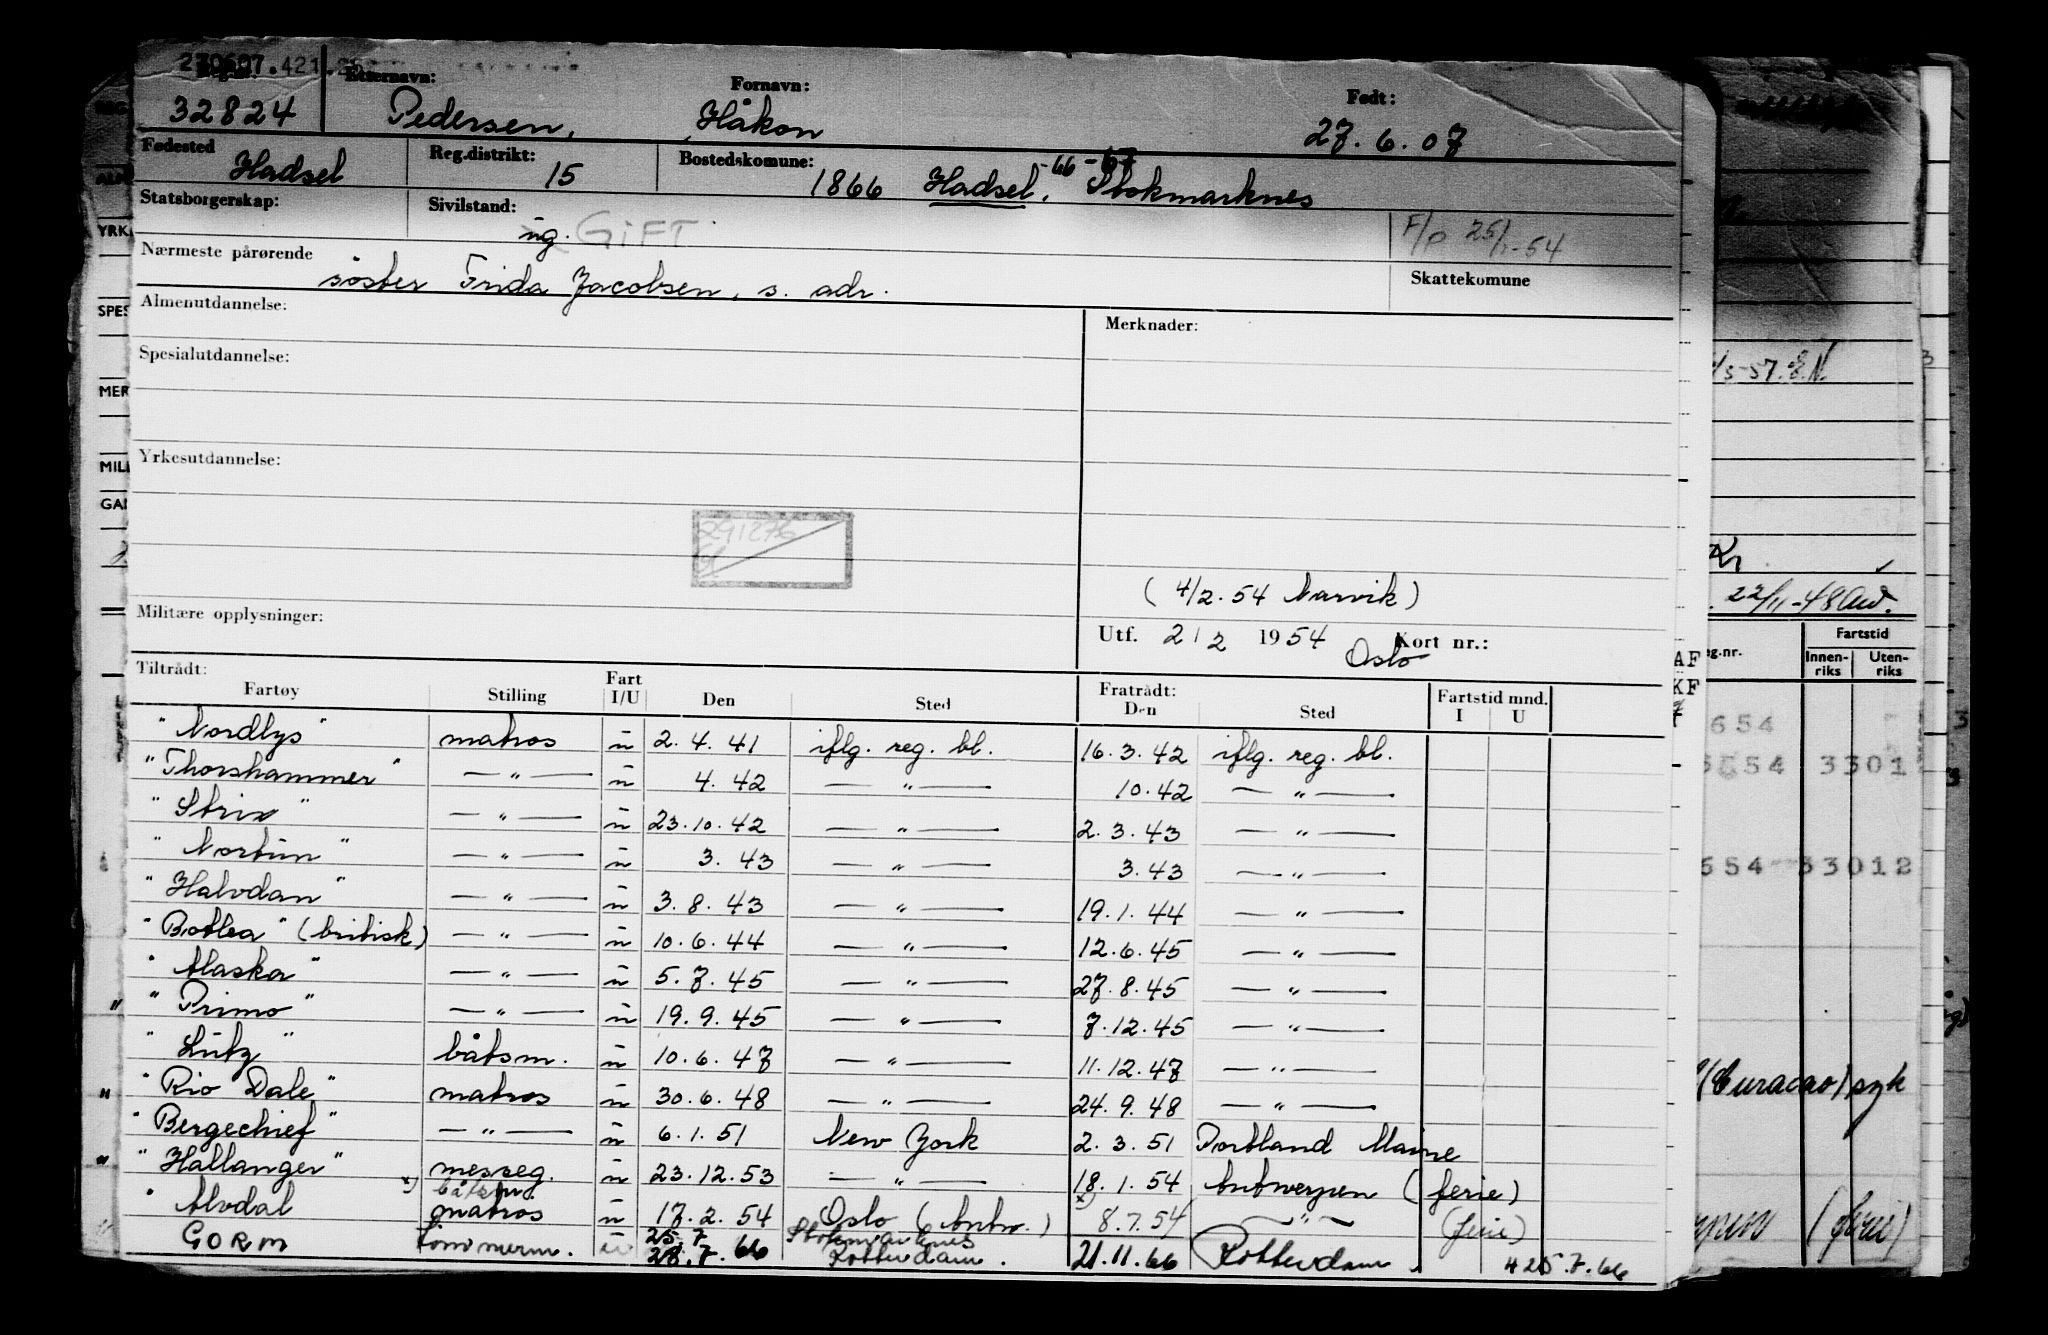 270607.421
32824 Etternavn: Pedersen, Fornavn: Håkon Født: 27.6.07
Fødested Hadsel Reg.distrikt: 15 Bostedskomune: 1866 Hadsel, -66 -67 Stokmarknes
Statsborgerskap: Sivilstand: ug. GIFT F/P 25/1-54
Nærmeste pårørende søster Frida Jacobsen, s. adr. Skattekomune
Almenutdannelse: Merknader:
Spesialutdannelse:
Yrkesutdannelse:
291276
(4/2.54 Narvik)
Militære opplysninger: Utf. 2/2 1954 Oslo Kort nr.:
Tiltrådt: Fratrådt:
Fartøy Stilling Fart I/U Den Sted Den Sted Fartstid mnd. I U
"Nordlys" matros u 2.4.41 iflg. reg. bl. 16.3.42 iflg. reg. bl.
"Thorshammer" — " — u 4.42 — " — 10.42 — " —
"Strix" — " — u 23.10.42 — " — 2.3.43 — " —
"Nortun" — " — u 3.43 — " — 3.43 — " —
"Halvdan" — " — u 3.8.43 — " — 19.1.44 — " —
"Botlea" (britisk) — " — u 10.6.44 — " — 12.6.45 — " —
"Alaska" — " — u 5.7.45 — " — 27.8.45 — " —
" "Primo" — " — u 19.9.45 — " — 7.12.45 — " —
"Lutz" båtsm. u 10.6.47 — " — 11.12.47 — " —
" "Rio Dale" matros u 30.6.48 — " — 24.9.48 — " —
"Bergechief" — " — u 6.1.51 New York 2.3.51 Portland Maine
" "Hallanger" messeg. u 23.12.53 — " — 18.1.54 Antwerpen (ferie)
" Alvdal x) båtsm. matros u 17.2.54 Oslo (Antw.) x) 8.7.54 — " — (ferie)
GORM tømmerm. u 25.7 28.7.66 Stokmarknes Rotterdam. 21.11.66 Rotterdam. 25.7.66
YRK
SPES
MER
MILI
GAN
AF
KF
/5-57. E.N.
22/11-48
Fartstid
g.nr. Innen-riks Uten-riks
654
6554 3301
654 33012
(Curacao) syk
(ferie)